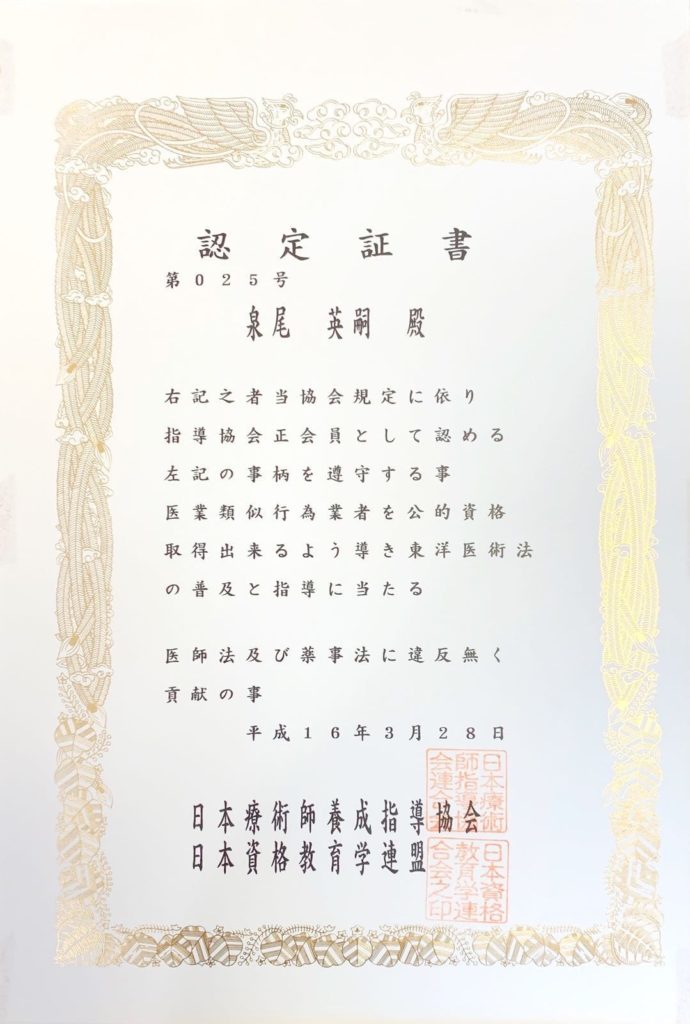 認定証書
第025号
泉尾 英嗣 殿
右記之者当協会規定に依り
指導協会正会員として認める
左記の事柄を遵守する事
医業類似行為業者を公的資格
取得出来るよう導き東洋医術法
の普及と指導に当たる
医師法及び薬事法に違反無く
貢献の事
平成16年3月28日
日本療術師養成指導協会
日本資格教育学連盟
日本療術
師指導協
会連合
日本資格
教育学連
合会之印